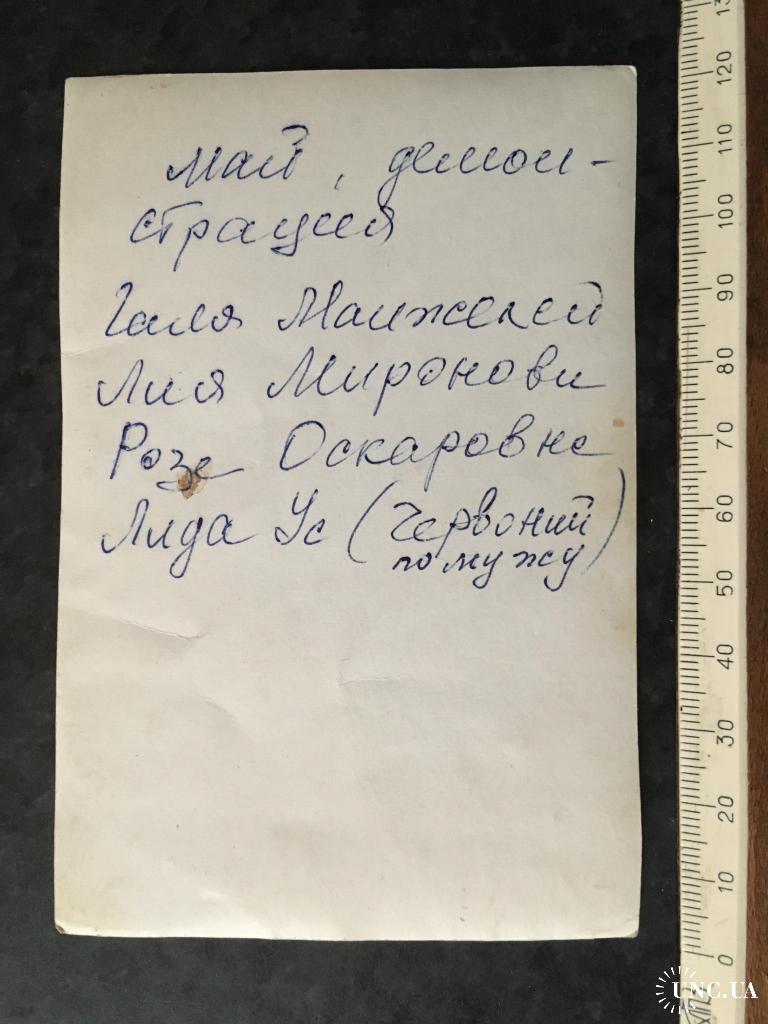 май, демон-
страция
Галя Манжелей
Лия Миронови
Розе Оскаровне
Лида Ус (Червоний
по мужу)
130
120
110
100
90
80
70
60
50
40
30
20
10
0
UNC.UA